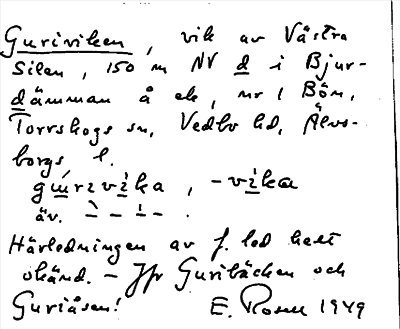 Guriviken, vik av Västra
Silen, 150 m NV d i Bjur-
dämman å ek, nr 1 Bön,
Torrskogs sn, Vedbo hd, Älvs-
borgs l.
gɯ́rivìka, -vìka
äv. ̀ – – ̀ – .
Härledningen av f. led helt
okänd. – Jfr Guribäcken och
Guriåsen! E. Rosell 1949